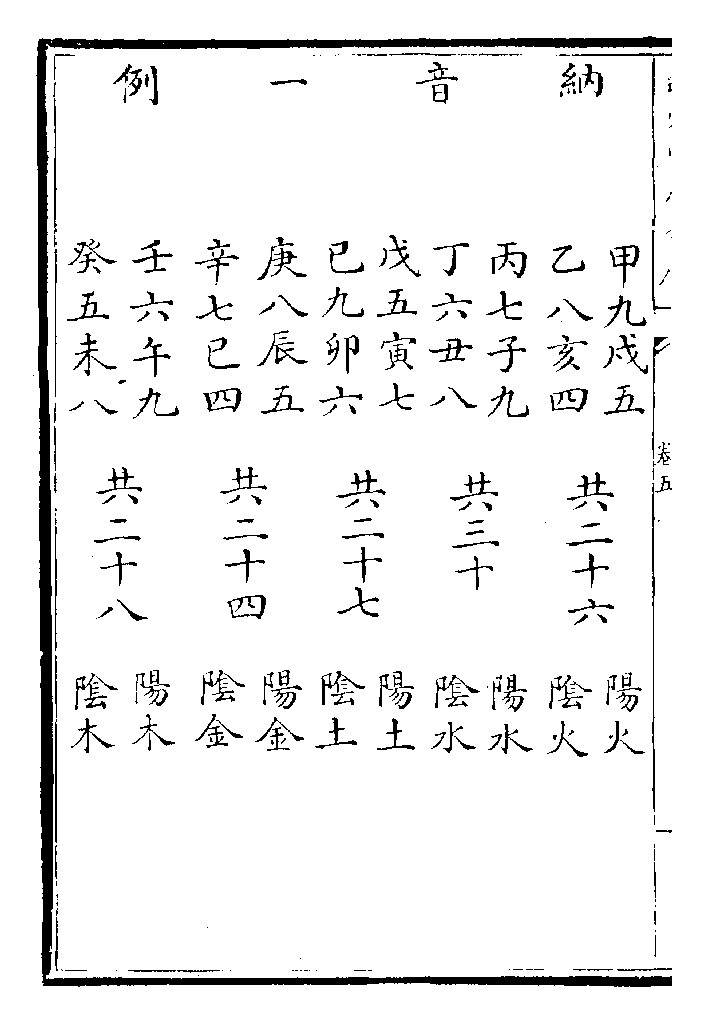 納音一例
甲九戌五
乙八亥四
共二十六
陽火
陰火
丙七子九
丁六丑八
共三十
陽水
陰水
戊五寅七
已九卯六
共二十七
陽土
陰土
庚八辰五
辛七巳四
共二十四
陽金
陰金
壬六午九
癸五未八
共二十八
陽木
陰木
卷五